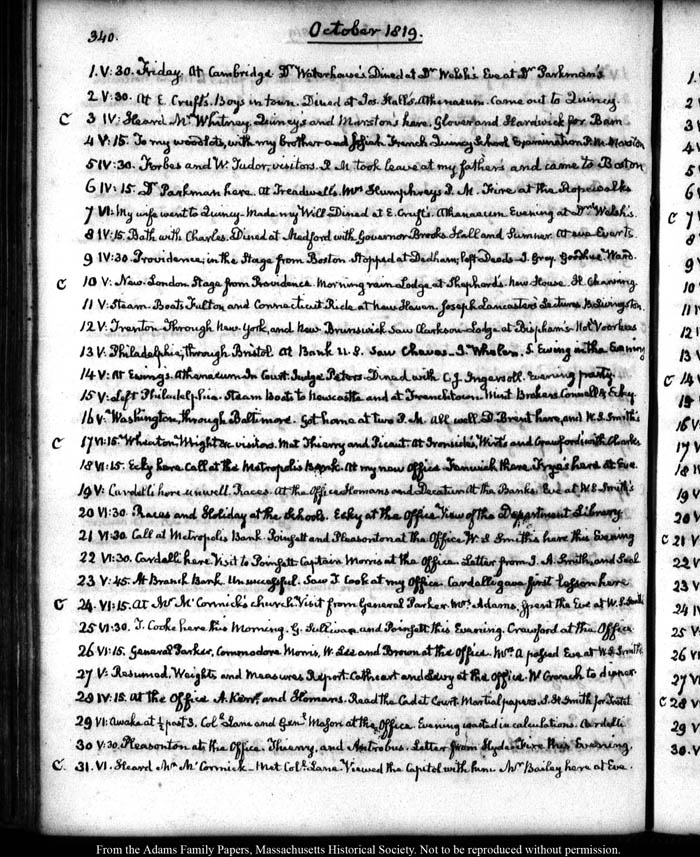 340.
October 1819.
1. V:30. Friday. At Cambridge Dr. Waterhouse's Dined at Dr Welsh's Eve at Dr Parkman's
2 V:30. At E. Cruft's. Boys in town. Dined at Jos. Hall's. Athenaeum. Came out to Quincy
C 3 IV: Heard Mr Whitney. Quincys and Marston's here. Glover and Hardwick for Bam
4 V:15. To my woodlots, with my brother and Josiah. French Quincy School Examination. P.M. Marston
5 IV:30. Forbes and W. Tudor, visitors. P.M took leave at my father's and came to Boston
6 IV:15. Dr Parkman here. At Treadwell's. Mrs Humphreys P.M. Fire at the Ropewalks
7 VI: My wife went to Quincy. Made my Will Dined at E. Cruft's. Athenaeum Evening at Dr Welsh's.
8 IV:15. Bath with Charles. Dined at Medford with Governor Brooks Hall and Sumner. At eve Everts
9 IV:30 Providence; in the Stage from Boston Stopped at Dedham; left Deeds. J. Grey. Goodhue. Ward.
C 10 V: New-London. Stage from Providence. Morning rain Lodge at Shephard's. New House. H. Channing
11 V: Steam Boats Fulton and Connecticut Ride at New Haven. Joseph Lancaster's Lectures. B. Livingston
12 V: Trenton Through New York, and New Brunswick Saw Clarkson Lodge at Bispham's Hotel Voorhees
13 V. Philadelphia, through Bristol. At Bank U.S. Saw Chaves. J. Whelen. S. Ewing in the Evening
14 V: At Ewings. Athenaeum In Court. Judge Peters. Dined with C. J. Ingersoll. Evening party
15 V: Left Philadelphia. Steam boats to Newcastle and at Frenchtown. Mint Brokers Connell & Ecky
16 V: Washington, through Baltimore. Got home at two P.M. All well. D. Brent here, and W. S. Smith's
C 17 VI:15. Wheaton Wright &c visitors. Met Thierry and Picaut. At Ironside's, Wirt's and Crawford with Charles
18 VI:15. Ecky here. Call at the Metropolis Bank. At my new Office. Fenwick there. Frye's here at Eve.
19 V: Cardelli here unwell. Races. At the Office Homans and Decatur At the Banks. Eve at W. S. Smith's
20 VI:30 Races and Holiday at the Schools. Ecky at the Office View of the Department Library
21 VI:30 Call at Metropolis Bank. Poinsett and Pleasonton at the Office W. S Smith's here this Evening
22 VI:30. Cardelli here Visit to Poinsett Captain Morris at the Office. Letter from J. A. Smith, and Seal
23 V:45. At Branch Bank. Unsuccessful. Saw J. Cook at my Office. Cardelli gave first lesson here
C 24. VI:15. At Mr McCormick's church. Visit from General Parker. Mrs Adams, spent the Eve at W. S. Smith
25 VI:30. J. Cocke here this Morning. G. Sullivan and Poinsett this Evening. Crawford at the Office
26 VI:15. General Parker, Commodore Morris, W. Lee and Brown at the Office. Mrs. A passed Eve at W. S. Smith's
27 V: Resumed, Weights and Measures Report. Cathcart and Levy at the Office. W Cranch to dinner
28 IV:15. At the Office A. Kerr, and Homans. Read the Cadet Court Martial papers. J. H Smith for
29 VI: Awake at ½ past 3. Col. Lane and Genl. Mason at the Office. Evening wasted in calculations. Cardelli
30 V:30. Pleasonton at the Office. Thierry, and Antrobus. Letter from Hyde. Fire this Evening.
C. 31. VI. Heard Mr McCormick - Met Col. Lane Viewed the Capitol with him. Mr Bailey here at Eve.
From the Adams Family Papers, Massachusetts Historical Society. Not to be reproduced without permission.